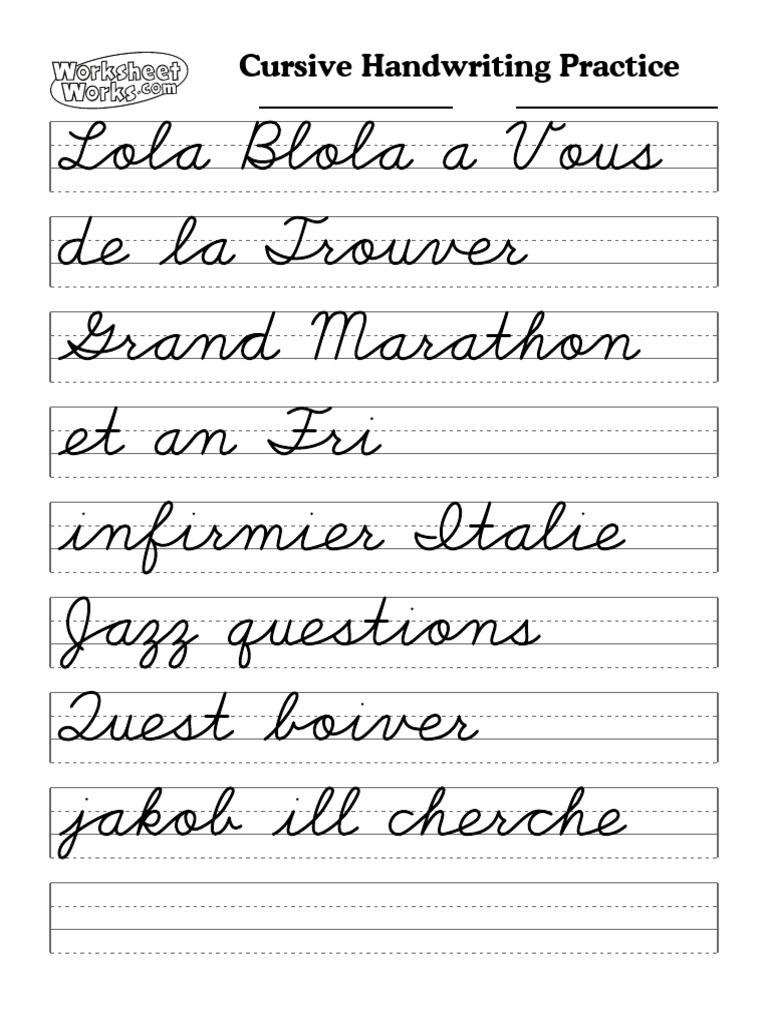 Worksheet Works.com
Cursive Handwriting Practice
Lola Blola a Vous
de la Trouver
Grand Marathon
et an Fri
infirmier Italie
Jazz questions
Quest boiver
jakob ill cherche